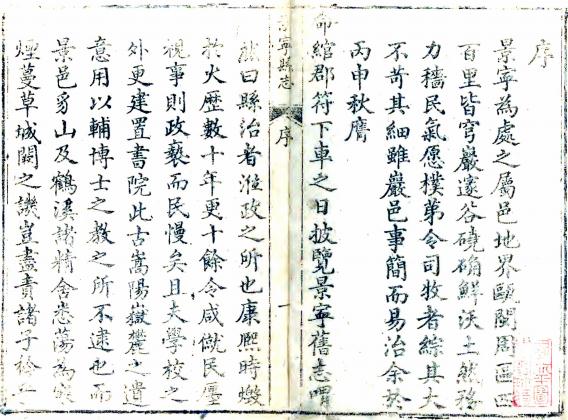 序
景寧為處之屬邑地界甌閩周匝四
百里皆穹巖邃谷磽确鮮沃土然務
力穡民氣愿樸苐令司牧者綜其大
不苛其細雖巖邑事簡而易治余於
丙申秋膺
命綰郡符下車之日披覽景寧舊志喟
寧縣志
序
一
然曰縣治者涖政之所也康熙時燬
於火歷數十年更十餘令咸僦民廛
視事則政褻而民慢矣且夫學校之
外更建置書院此古嵩陽嶽麓之遺
意用以輔博士之教之所不逮也而
景邑豸山及鶴溪諸精舍悉蕩為寒
煙蔓草城闕之譏豈盡責諸子衿之